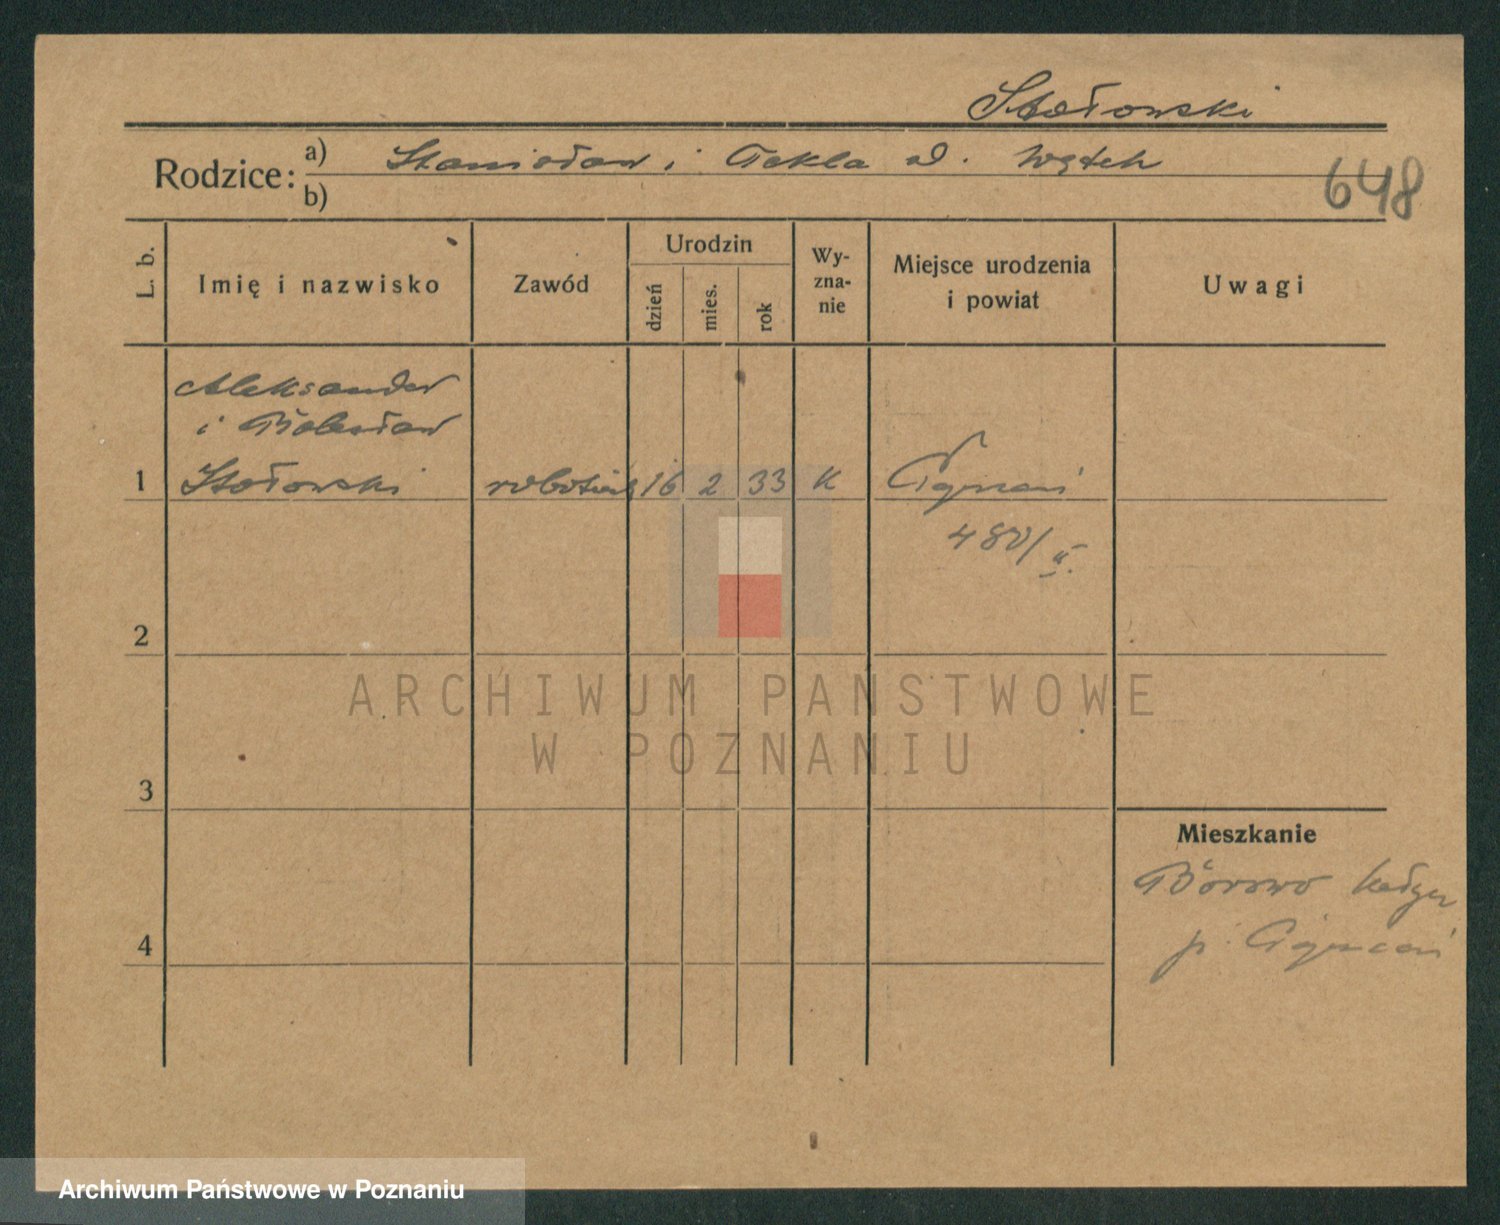 Stołowski
Rodzice: a) Stanisław i Tekla d. Wątek
b)
648
L. b.
Imię i nazwisko
Zawód
Urodzin
dzień
mies.
rok
Wy-
zna-
nie
Miejsce urodzenia
i powiat
Uwagi
Aleksander
i Bolesław
1 Stołowski robotnik 16 2 33 K
480/II.
2
3
4
Mieszkanie
Borowo
p.
ARCHIWUM PAŃSTWOWE
W POZNANIU
Archiwum Państwowe w Poznaniu